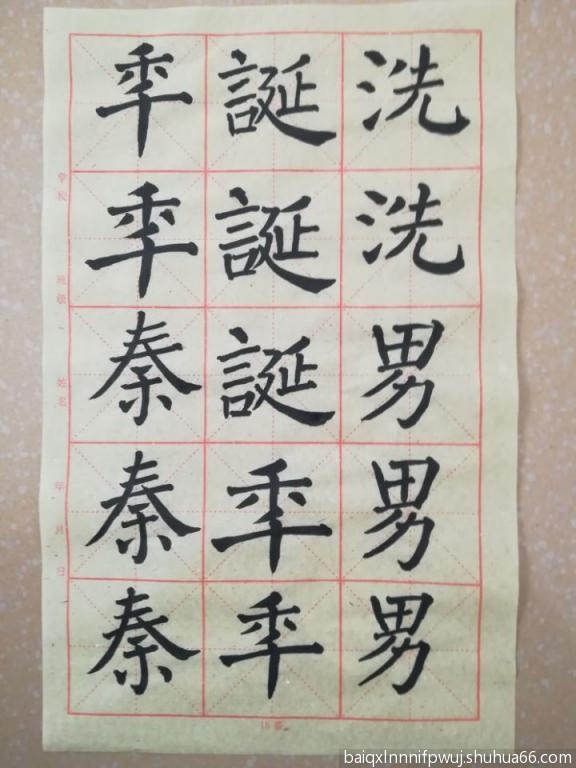 洗洗男男男
誕誕誕秊秊
秊秊秦秦秦
学校 班级 姓名 年 月 日
baiqxlnnnifpwuj.shuhua66.com